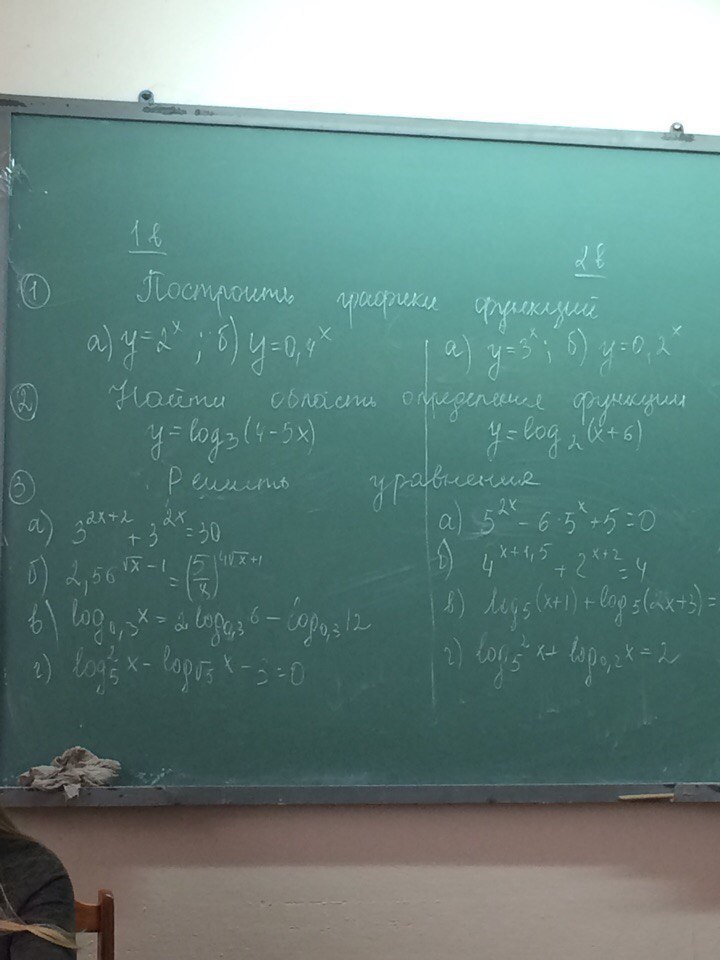 1 в
2 в
① Построить графики функций
а) y=2^x ; б) y=0,4^x
а) y=3^x ; б) y=0,2^x
② Найти область определения функции
y=log₃(4-5x)
y=log₂(x+6)
③ Решить уравнения
а) 3^{2x+2} + 3^{2x} = 30
а) 5^{2x} - 6·5^x + 5 = 0
б) 2,56^{√x-1} = (5/8)^{4√x+1}
б) 4^{x+1,5} + 2^{x+2} = 4
в) log_{0,3} x = 2 log_{0,3} 6 - log_{0,3} 12
в) log₅(x+1) + log₅(2x+3) =
г) log₅² x - log_{√5} x - 3 = 0
г) log₅² x + log_{0,2} x = 2